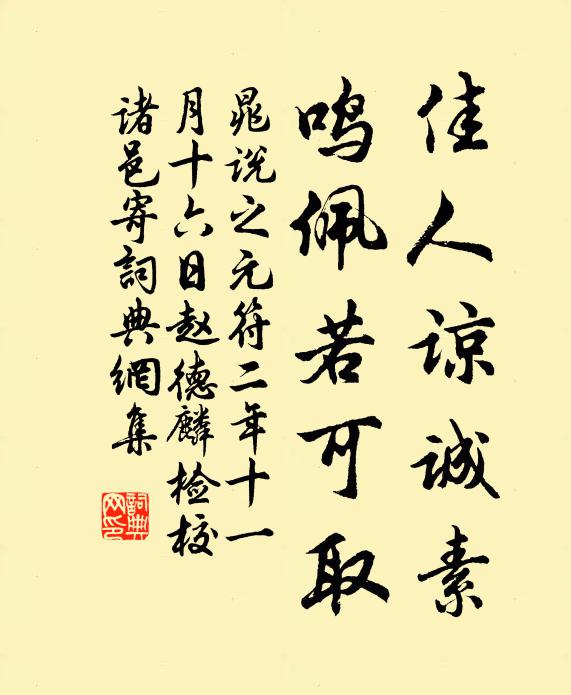 佳人谅诚素
鸣佩若可取
晁说之元符二年十一
月十六日赵德麟检校
诸邑寄詞典網集
詞典
网印